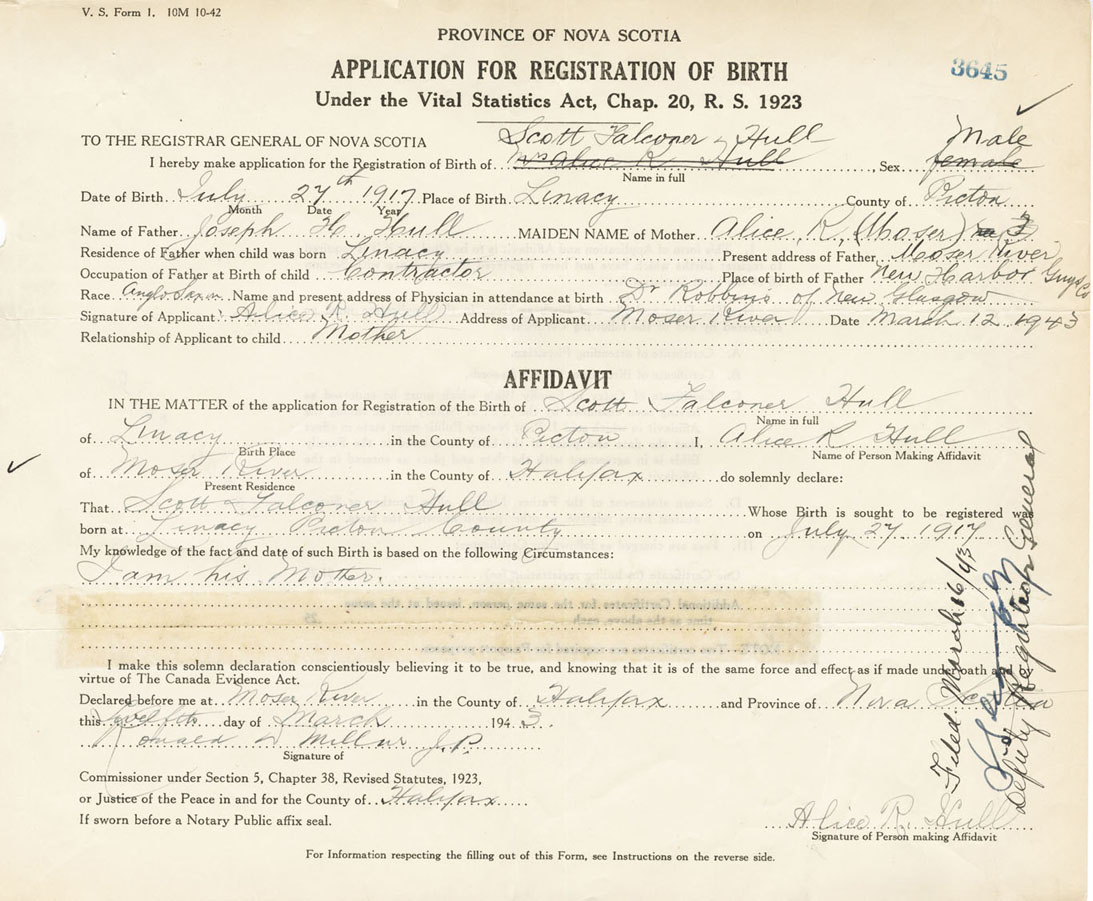 V. S. Form 1. 10M 10-42
PROVINCE OF NOVA SCOTIA
APPLICATION FOR REGISTRATION OF BIRTH
3645
Under the Vital Statistics Act, Chap. 20, R. S. 1923
TO THE REGISTRAR GENERAL OF NOVA SCOTIA Scott Falconer Hull Male
I hereby make application for the Registration of Birth of Mrs Alice R Hull, Sex female
Name in full
Date of Birth July 27th 1917 Place of Birth Linacy County of Picton
Month Date Year
Name of Father Joseph H. Hull MAIDEN NAME of Mother Alice, R, (Moser)
Residence of Father when child was born Linacy Present address of Father, Moser River
Occupation of Father at Birth of child Contractor Place of birth of Father New Harbor Guys Co
Race Anglo Saxon Name and present address of Physician in attendance at birth Dr Robbins of New Glasgow
Signature of Applicant Alice R. Hull Address of Applicant Moser River Date March 12 1943
Relationship of Applicant to child Mother
AFFIDAVIT
IN THE MATTER of the application for Registration of the Birth of Scott Falconer Hull
Name in full
of Linacy in the County of Picton I, Alice R Hull
Birth Place Name of Person Making Affidavit
of Moser River in the County of Halifax do solemnly declare:
Present Residence
That Scott Falconer Hull Whose Birth is sought to be registered was
born at Linacy Picton County on July 27 1917
My knowledge of the fact and date of such Birth is based on the following Circumstances:
I am his Mother.
I make this solemn declaration conscientiously believing it to be true, and knowing that it is of the same force and effect as if made under oath and by
virtue of The Canada Evidence Act.
Declared before me at Moser River in the County of Halifax and Province of Nova Scotia
this Twelth day of March 1943.
Ronald D Millar J.P.
Signature of
Commissioner under Section 5, Chapter 38, Revised Statutes, 1923,
or Justice of the Peace in and for the County of Halifax
If sworn before a Notary Public affix seal.
Alice R. Hull
Signature of Person making Affidavit
For Information respecting the filling out of this Form, see Instructions on the reverse side.
Filed March 16/43
Deputy Registrar General